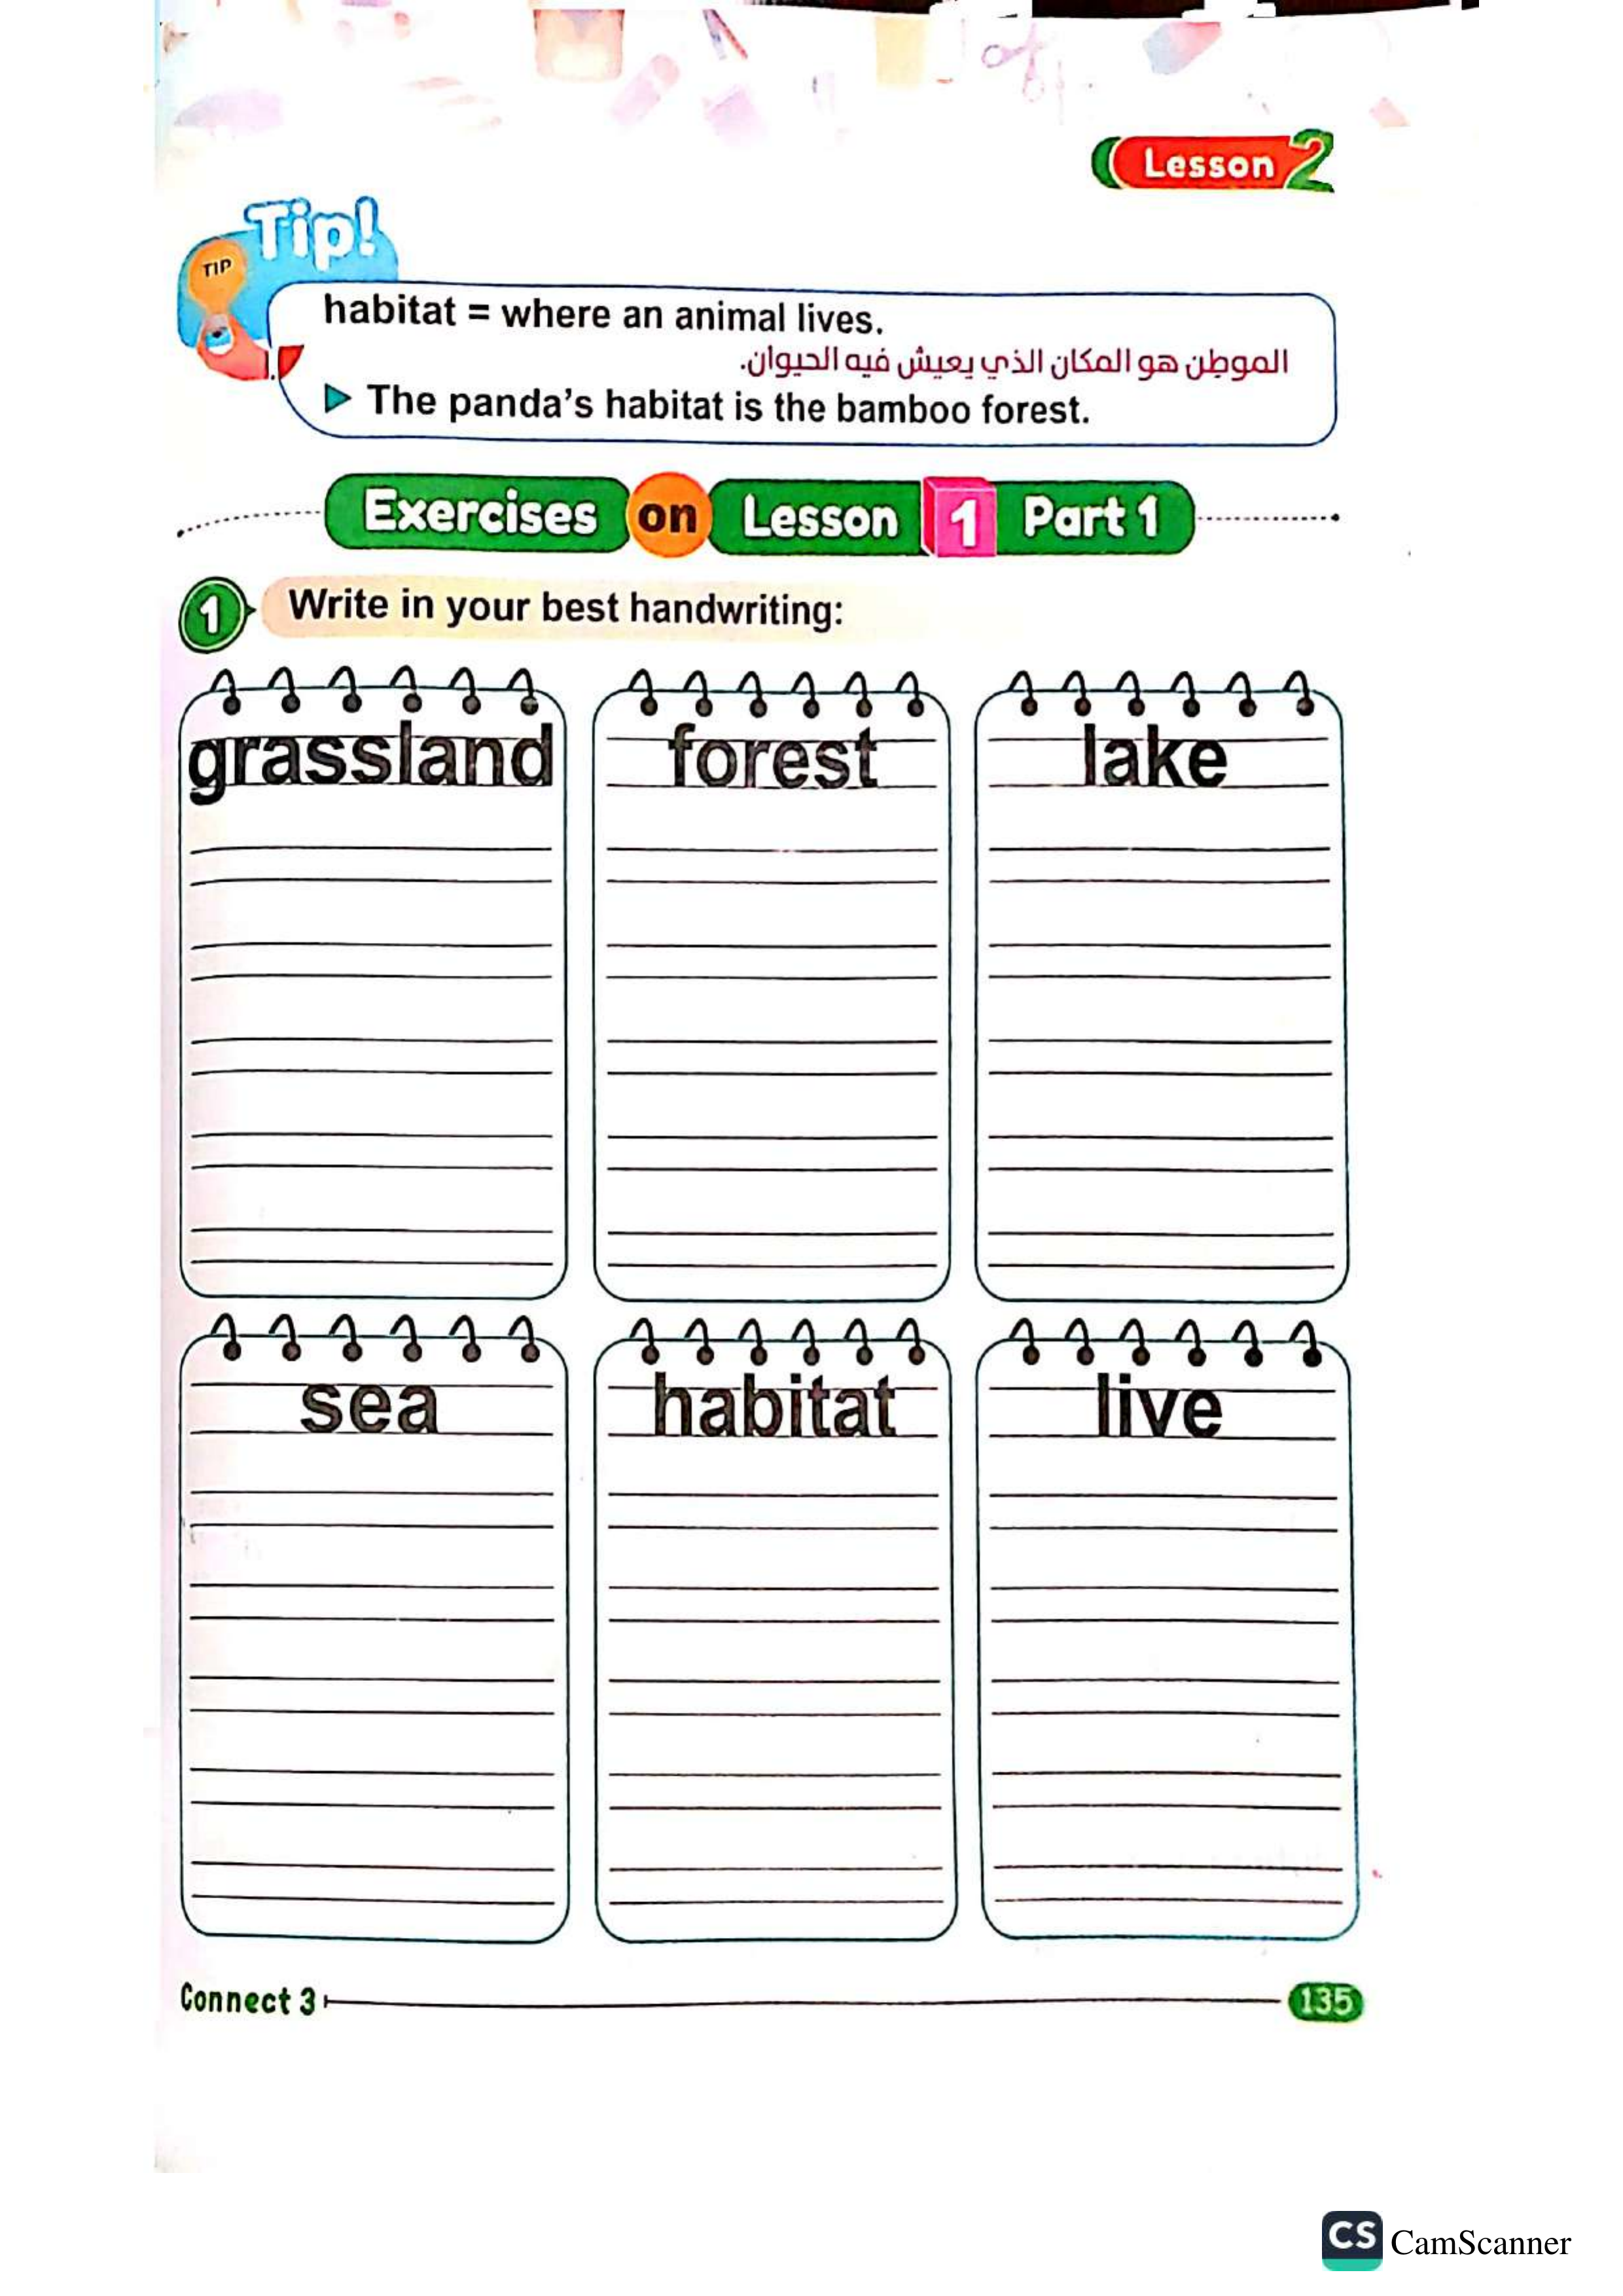 Lesson 2
Tip!
TIP
habitat = where an animal lives.
الموطن هو المكان الذي يعيش فيه الحيوان.
The panda's habitat is the bamboo forest.
Exercises on Lesson 1 Part 1
1 Write in your best handwriting:
grassland forest lake
sea habitat live
Connect 3 135
CS CamScanner